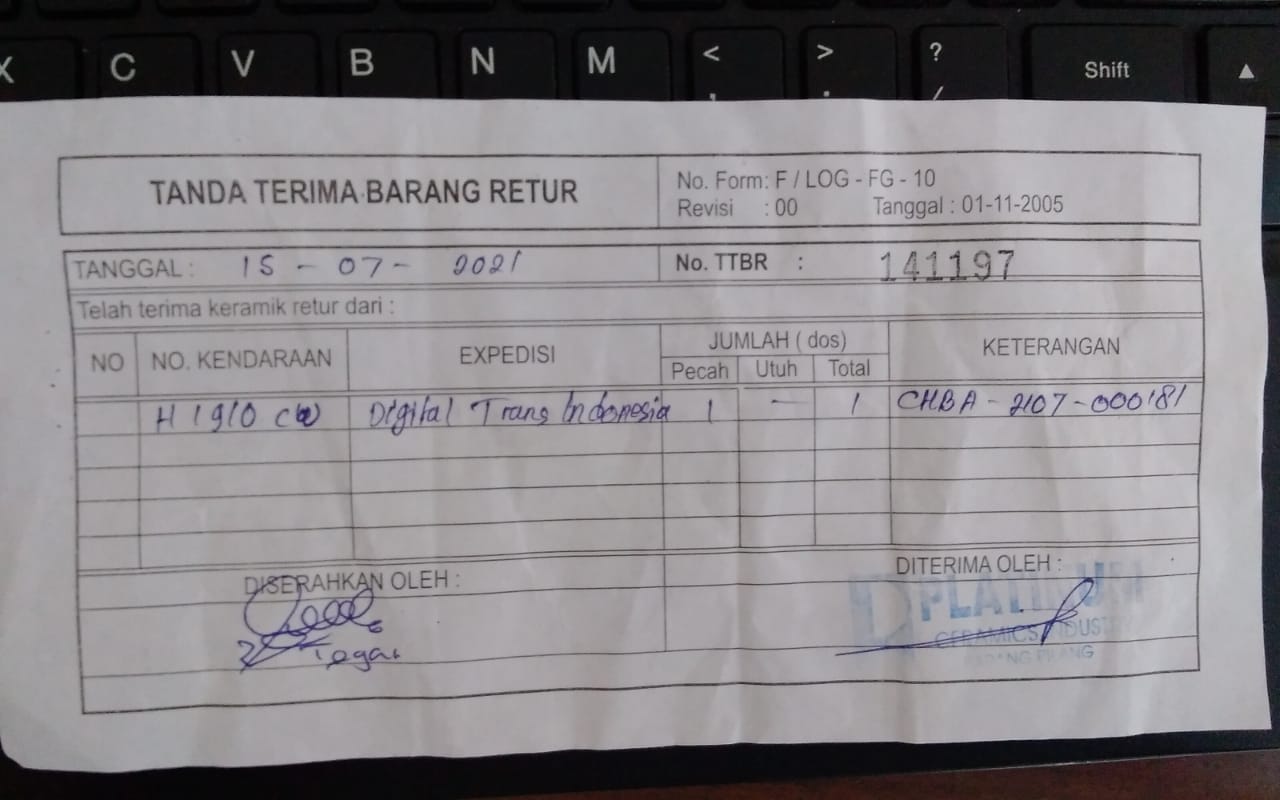 X C V B N M < , > . ? / Shift ▲
TANDA TERIMA BARANG RETUR
No. Form: F / LOG - FG - 10
Revisi : 00 Tanggal : 01-11-2005
TANGGAL : 15 - 07 - 2021
No. TTBR : 141197
Telah terima keramik retur dari :
NO NO. KENDARAAN EXPEDISI JUMLAH ( dos) KETERANGAN
Pecah Utuh Total
H 1910 CW Digital Trans Indonesia 1 - 1 CHBA - 2107 - 000181
DISERAHKAN OLEH : DITERIMA OLEH :
PLATINUM
CERAMICS INDUSTRY
Tegar